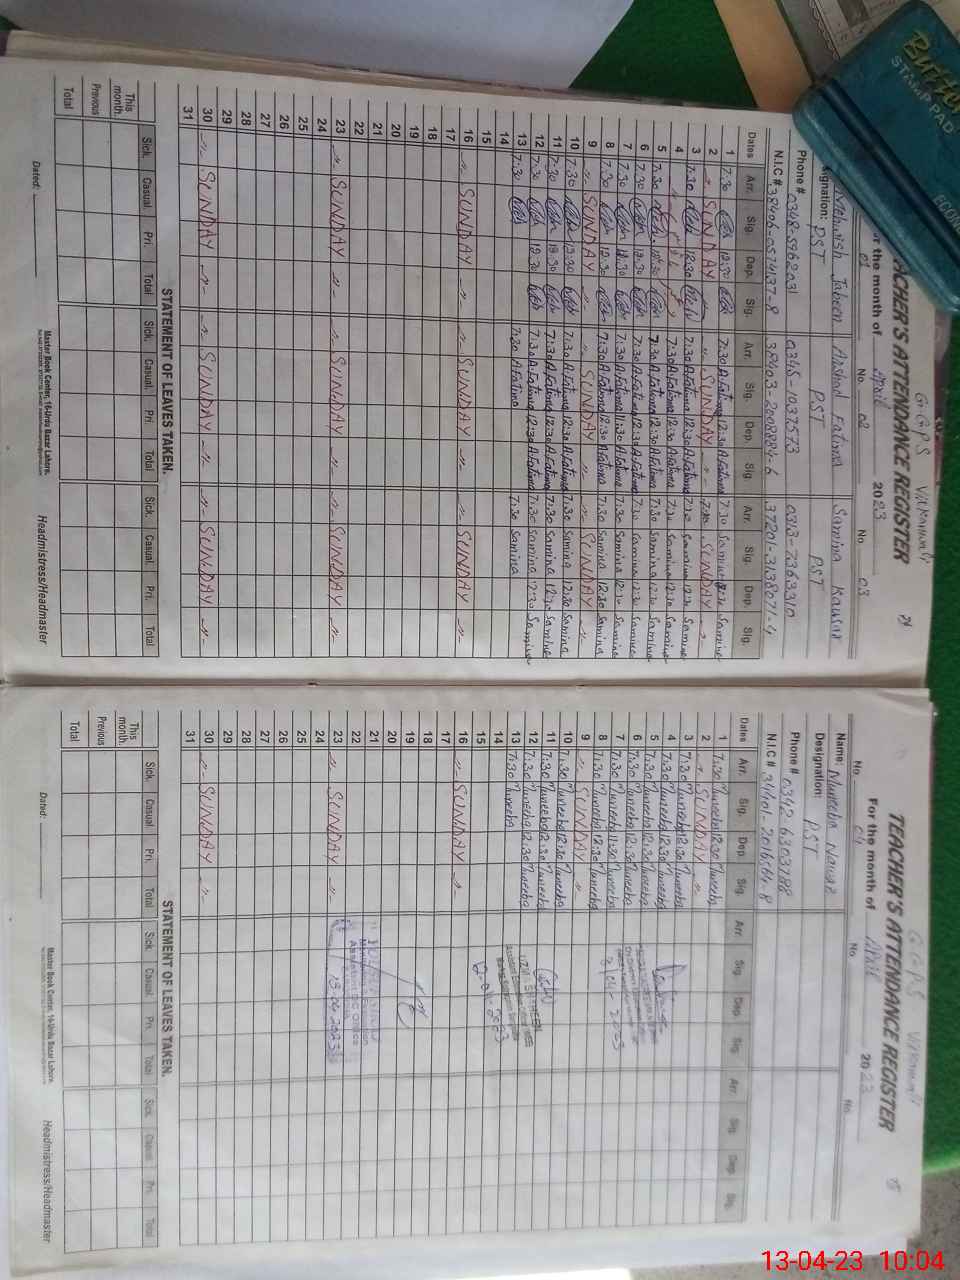 GGPS
TEACHER'S ATTENDANCE REGISTER
For the month of April 2023
No. 01 No. 02 No. 03
Jabeen Fatima Samina Kausar
Designation: PST PST PST
Phone # 0348-5962031 0345-1037573 0313-7363310
N.I.C # 38406-0574137-8 38403-2008884-6 37201-3138071-4
Dates Arr. Sig. Dep. Sig. Arr. Sig. Dep. Sig. Arr. Sig. Dep. Sig.
1 7:30 12:30 7:30 A.Fatima 12:30 A.Fatima 7:30 Samina 12:30 Samina
2 SUNDAY SUNDAY SUNDAY
3 7:30 12:30 7:30 A.Fatima 12:30 A.Fatima 7:30 Samina 12:30 Samina
4 7:30 A.Fatima 12:30 A.Fatima 7:30 Samina 12:30 Samina
5 7:30 12:30 7:30 A.Fatima 12:30 A.Fatima 7:30 Samina 12:30 Samina
6 7:30 12:30 7:30 A.Fatima 12:30 A.Fatima 7:30 Samina 12:30 Samina
7 7:30 7:30 A.Fatima 11:30 A.Fatima 7:30 Samina 12:30 Samina
8 7:30 12:30 7:30 A.Fatima 12:30 A.Fatima 7:30 Samina 12:30 Samina
9 SUNDAY SUNDAY SUNDAY
10 7:30 7:30 A.Fatima 12:30 A.Fatima 7:30 Samina 12:30 Samina
11 7:30 7:30 A.Fatima 12:30 A.Fatima 7:30 Samina 12:30 Samina
12 7:30 12:30 7:30 A.Fatima 12:30 A.Fatima 7:30 Samina 12:30 Samina
13 7:30 7:30 A.Fatima 7:30 Samina
14
15
16 SUNDAY SUNDAY SUNDAY
17
18
19
20
21
22
23 SUNDAY SUNDAY SUNDAY
24
25
26
27
28
29
30 SUNDAY SUNDAY SUNDAY
31
STATEMENT OF LEAVES TAKEN.
Sick. Casual. Pri. Total Sick. Casual. Pri. Total Sick. Casual. Pri. Total
This month.
Previous
Total
Master Book Center, 16-Urdu Bazar Lahore.
Dated: Headmistress/Headmaster
GGPS
TEACHER'S ATTENDANCE REGISTER
For the month of April 2023
No. 04 No. No.
Name: Muneeba Nawaz
Designation: PST
Phone # 0342 6303788
N.I.C # 34401-2016564-8
Dates Arr. Sig. Dep. Sig. Arr. Sig. Dep. Sig. Arr. Sig. Dep. Sig.
1 7:30 Muneeba 12:30 Muneeba
2 SUNDAY
3 7:30 Muneeba 12:30 Muneeba
4 7:30 Muneeba 12:30 Muneeba
5 7:30 Muneeba 12:30 Muneeba
6 7:30 Muneeba 12:30 Muneeba
7 7:30 Muneeba 11:30 Muneeba
8 7:30 Muneeba 12:30 Muneeba
9 SUNDAY
10 7:30 Muneeba 12:30 Muneeba
11 7:30 Muneeba 12:30 Muneeba
12 7:30 Muneeba 12:30 Muneeba
13 7:30 Muneeba
14
15
16 SUNDAY
17
18
19
20
21
22
23 SUNDAY
13.04.2023
24
25
26
27
28
29
30 SUNDAY
31
STATEMENT OF LEAVES TAKEN.
Sick. Casual. Pri. Total Sick. Casual. Pri. Total Sick. Casual. Pri. Total
This month.
Previous
Total
Master Book Center, 16-Urdu Bazar Lahore.
Dated: Headmistress/Headmaster
STAMP PAD
13-04-23 10:04